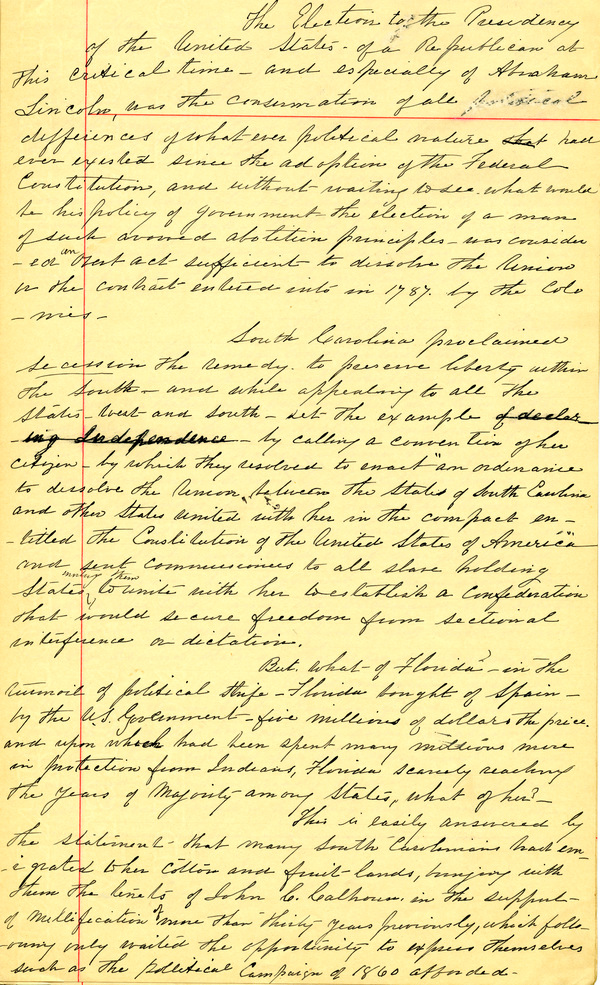 The Election to the Presidency
of the United States - of a Republican at
this critical time - and especially of Abraham
Lincoln, was the consermation of all
differences of what ever political nature that had
ever existed since the adoption of the Federal
Constitution, and without waiting to see what would
be his policy of Government the election of a man
of such avowed abolition principles - was consider
- ed an overt act sufficient to dissolve the Union
or the contract entered into in 1787. by the Colo
- nies -
South Carolina proclaimed
secession the remedy. to preserve liberty within
the South - and while appealing to all the
States - West and South - set the example of declar-
- ing Independence - by calling a convention of her
citizen - by which they resolved to enact "an ordinance
to dissolve the Union, between the State of South Carolina
and other States united with her in the compact en-
- titled the Constitution of the United States of America"
and sent commissioners to all slave holding
States inviting them to unite with her to establish a Confederation
that would secure freedom from sectional
interference or dictation.
But what of Florida? - in the
turmoil of political strife - Florida bought of Spain -
by the U.S. Government - five millions of dollars the price.
and upon which had been spent many millions more
in protection from Indians, Florida scarcely reaching
the years of Majority among States, what of her? -
This is easily answered by
the statement - that many South Carolinians had em-
- igrated to her cotton and fruit lands, bringing with
them the tenets of John C. Calhoun in the support -
of Nullification of more than thirty years previously, which foll-
- owing only waited the opportunity to express themselves
such as the Political Campaign of 1860 afforded -